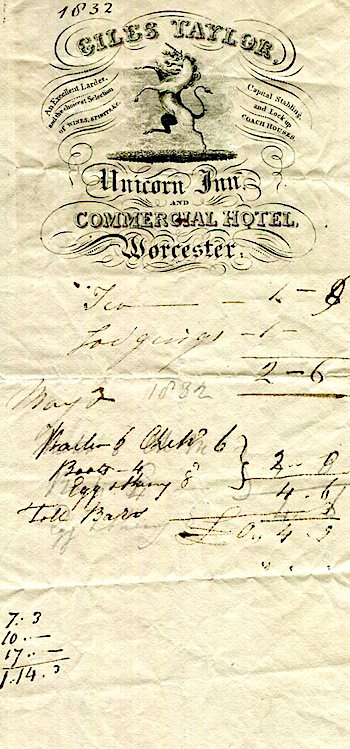 1832
GILES TAYLOR,
An Excellent Larder,
and the choicest Selection
OF WINES, SPIRITS, &C.
Capital Stabling,
and Lock up
COACH HOUSES.
Unicorn Inn,
AND
COMMERCIAL HOTEL,
Worcester,
Tea — 1 –
Lodgings – 1 –
2 – 6
May 1832
Waiter 6 6
Boots – 4
8
4 . 6
Toll Bars
£0 .. 4 . 9
7 . 3
10 .. –
17 .. –
1 . 14 . 3